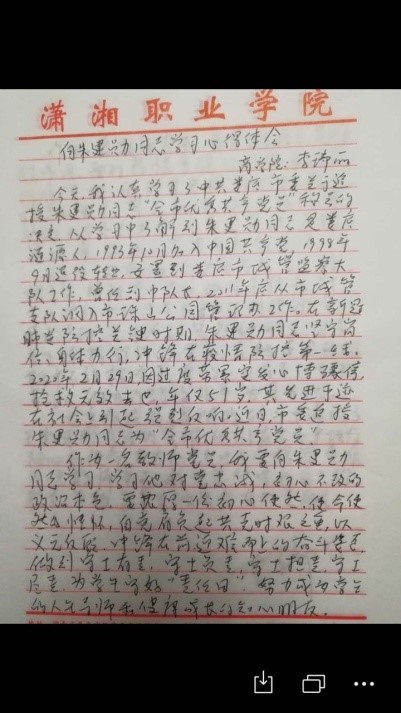 潇湘职业学院
向朱建勋同志学习心得体会
商学院：李
今天，我认真学习了中共娄底市委关于追
授朱建勋同志“全市优秀共产党员”称号的
决定，从学习中了解到朱建勋同志是娄底
涟源人，1993年10月加入中国共产党，1998年
9月退役转业，安置到娄底市城管监察大
队工作，曾任副中队长，2011年底从市城管
支队调入市珠山公园管理办工作。在新冠
肺炎防控关键时刻，朱建勋同志坚守岗
位，身体力行，冲锋在疫情防控第一线。
2020年2月29日，因过度劳累突发心搏骤停，
抢救无效去世，年仅51岁。其先进事迹
在社会上引起强烈反响。近日，市委追授
朱建勋同志为“全市优秀共产党员”
作为一名教师党员，我要向朱建勋
同志学习，学习他对党忠诚，初心不改的
政治本色。要怀一份初心使然，使命使
然的情怀，向党员负起共克时艰之重，以
义无反顾，冲锋在前，迎难而上的奋斗姿态
做到守土有责，守土负责，守土担责，守土
尽责，为学生守好“责任田”，努力成为学生
的人生导师和健康成长的知心朋友。